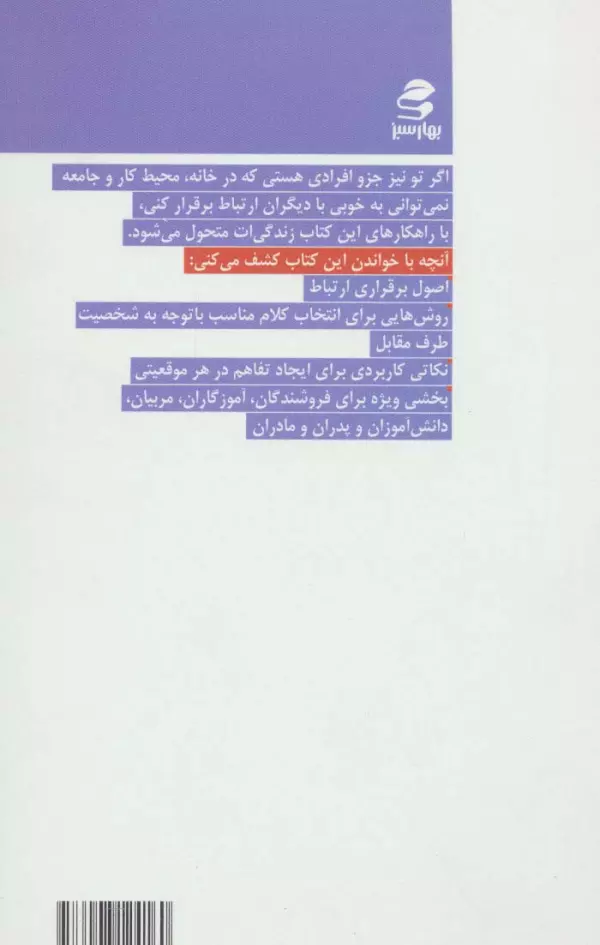 بهار سبز
اگر تو نیز جزو افرادی هستی که در خانه، محیط کار و جامعه
نمی‌توانی به خوبی با دیگران ارتباط برقرار کنی،
با راهکارهای این کتاب زندگی‌ات متحول می‌شود.
آنچه با خواندن این کتاب کشف می‌کنی:
اصول برقراری ارتباط
روش‌هایی برای انتخاب کلام مناسب باتوجه به شخصیت
طرف مقابل
نکاتی کاربردی برای ایجاد تفاهم در هر موقعیتی
بخشی ویژه برای فروشندگان، آموزگاران، مربیان،
دانش‌آموزان و پدران و مادران